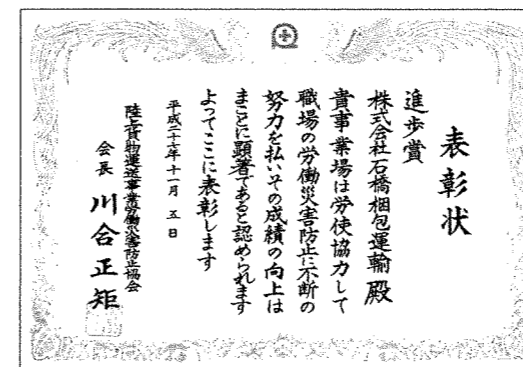 表彰状
進歩賞
株式会社石橋梱包運輸殿
貴事業場は労使協力して
職場の労働災害防止に不断の
努力を払いその成績の向上は
まことに顕著であると認められます
よってここに表彰します
平成二十六年十一月 五 日
陸上貨物運送事業労働災害防止協会
会長 川合正矩